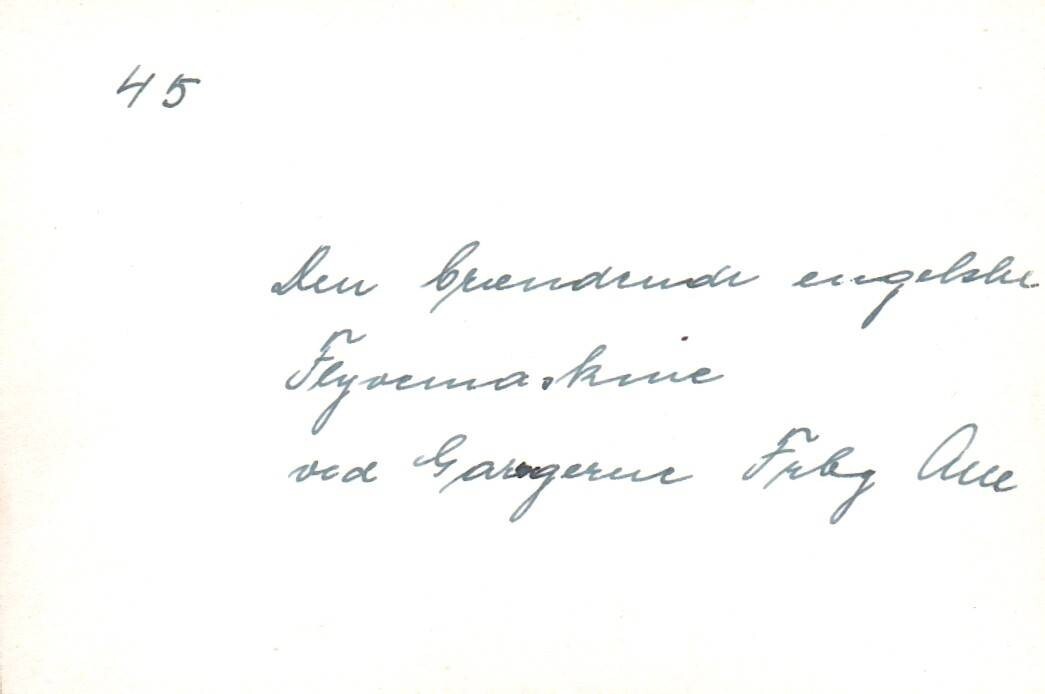 45
Den brændende engelske
Flyvemaskine
ved Garagerne Frbg Alle